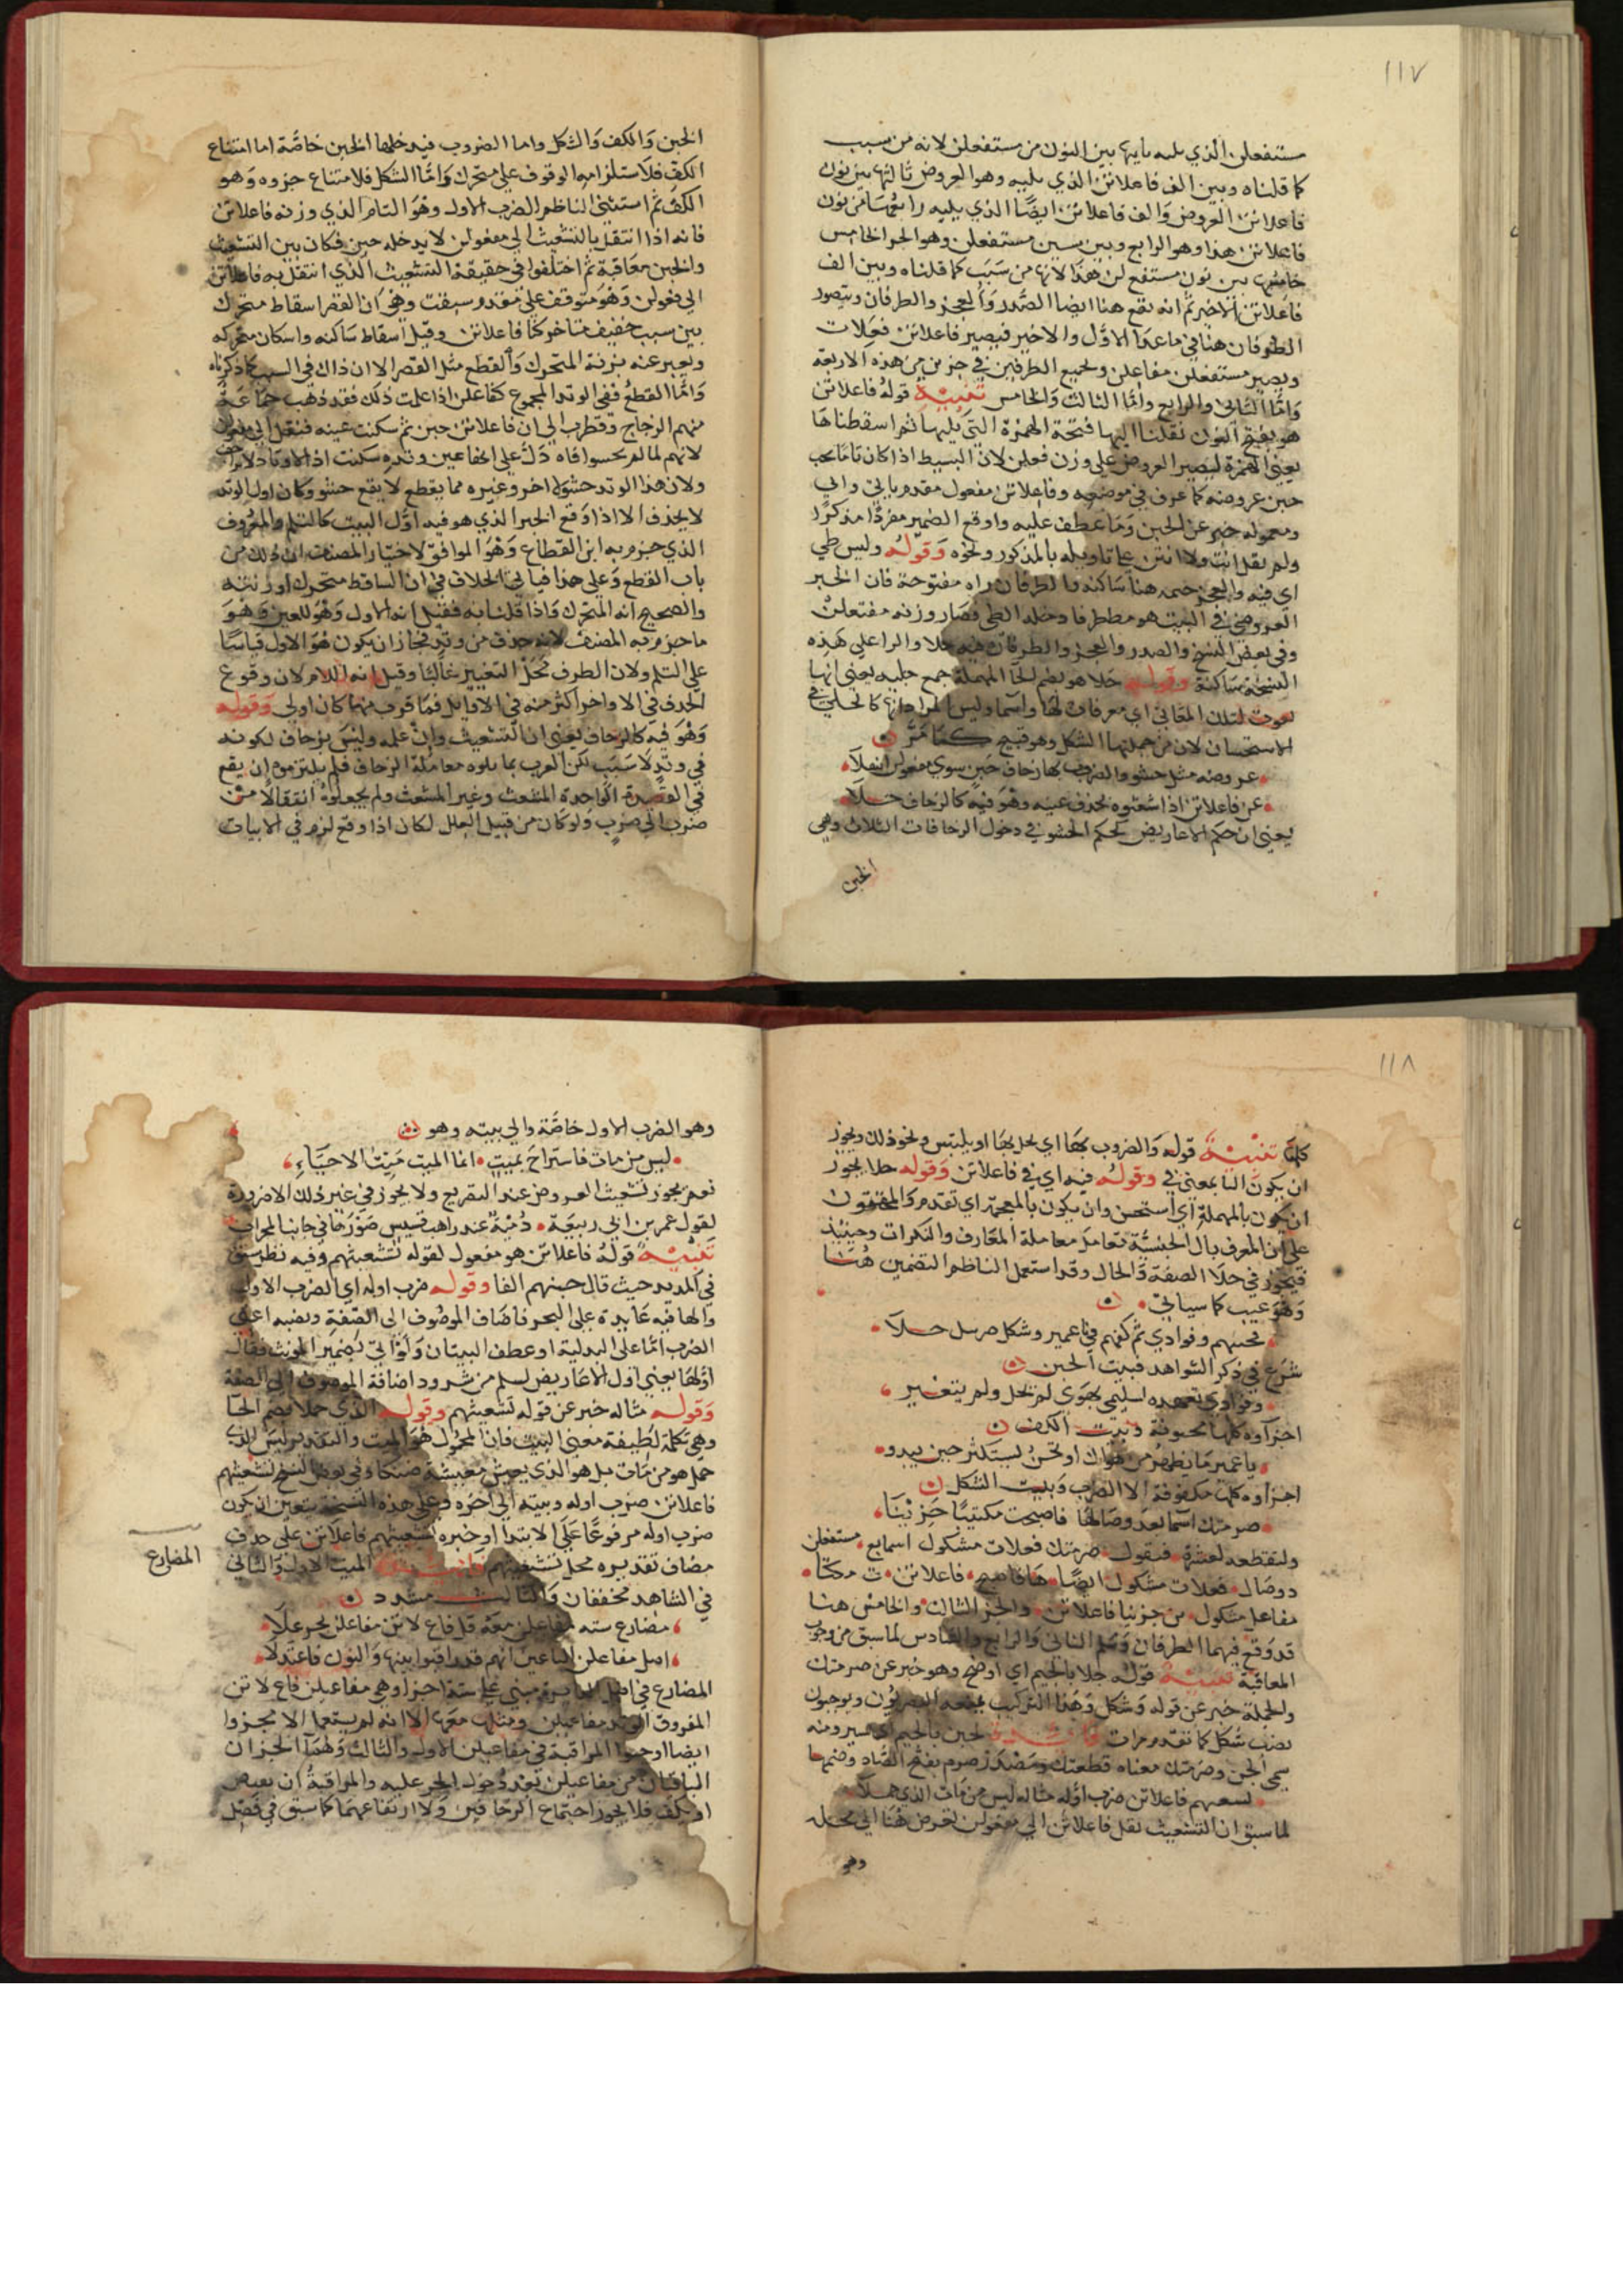 ١١٧
مستفعلن الذي يليه ثانيها بين النون من مستفعلن لانه من سبب
كما قلناه وبين الف فاعلاتن الذي يليه وهو العروض ثالثها بين نون
فاعلاتن العروض والف فاعلاتن ايضا الذي يليه رابعها من نون
فاعلاتن هذا وهو الرابع وبين سين مستفعلن وهو الجزء الخامس
خامسها بين نون مستفع لن هذا لانها من سبب كما قلناه وبين الف
فاعلاتن الاخير ثم انه يقع هنا ايضا الصدر والعجز والطرفان ويتصور
الطرفان هنا في ما عدا الاول والاخير فيصير فاعلاتن فعلات
ويصير مستفعلن مفاعل وجميع الطرفين في جزءين من هذه الاربعة
واما الثاني والرابع واما الثالث والخامس تنبيه قوله فاعلاتن
هو بفتح النون نقلنا اليها فتحة الهمزة التي يليها ثم اسقطناها
يعني الهمزة ليصير العروض على وزن فعلن لان البسيط اذا كان تاما يجب
خبن عروضه كما عرف في موضعه وفاعلاتن مفعول مقدم باتي والي
ومعموله خبر عن الخبن وما عطف عليه واوقع الضمير مفردا مذكرا
ولم يقل اتت ولا اتتن على تاويله بالمذكور ونحوه وقوله وليس طي
اي فيه والعجز جيمه هنا ساكنة والطرفان راه مفتوحة فان الجزء
العروضي في البيت هو مططرفا دخله الطي فصار وزنه مفتعلن
وفي بعض النسخ والصدر والعجز والطرفان فيه جلا والرا على هذه
النسخة ساكنة وقوله حلا هو بضم الحا المهملة جمع حلية يعني انها
نعوت لتلك المعاني اي معرفات لها واسما وليس المراد انها كالحلي في
الاستحسان لان من جملتها الشكل وهو قبيح كما مر
عروضه مثل حشو والضرب بها زحاف خبن سوى مفعولن انتقلا
عن فاعلاتن اذا شعثوه بحذف عينه وهو فيه كالزحاف حلا
يعني ان حكم الاعاريض كحكم الحشو في دخول الزحافات الثلاث وهي
الخبن
الخبن والكف والشكل واما الضروب فيدخلها الخبن خاصة اما امتناع
الكف فلاستلزامه الوقوف على متحرك واما الشكل فلامتناع جزوه وهو
الكف ثم استثنى الناظم الضرب الاول وهو التام الذي وزنه فاعلاتن
فانه اذا انتقل بالتشعيث الى مفعولن لا يدخله خبن فكان بين التشعيث
والخبن معاقبة ثم اختلفوا في حقيقة التشعيث الذي انتقل به فاعلاتن
الى مفعولن وهو متوقف على مقدمة سبقت وهي ان القصر اسقاط متحرك
بين سبب خفيف متاخر كتا فاعلاتن وقيل اسقاط ساكنه واسكان متحركه
ويعبر عنه بزنة المتحرك والقطع مثل القصر الا ان ذاك في السبب كما ذكرناه
واما القطع ففي الوتد المجموع كفاعلن اذا علمت ذلك فقد ذهب جماعة
منهم الزجاج وقطرب الى ان فاعلاتن خبن ثم سكنت عينه فنقل الى مفعولن
لانهم لما لم يحسوا فاه دل على انها عين وتده سكنت اذ الاوتاد لا تزاحف
ولان هذا الوتد حشو لا اخر وغيره مما يقطع لا يقع حشو وكان اول الوتد
لا يحذف الا اذا وقع الجزء الذي هو فيه اول البيت كالثلم والمعروف
الذي جزم به ابن القطاع وهو الموافق لاختيار المصنف ان ذلك من
باب القطع وعلى هذا فياتي الخلاف في ان الساقط متحرك او زنته
والصحيح انه المتحرك واذا قلنا به فقيل انه الاول وهو للعين وهو
ما جزم به المصنف لانه حذف من وتد فجاز ان يكون هو الاول قياسا
على الثلم ولان الطرف محل التغيير غالبا وقيل انه اللام لان وقوع
الحذف في الاواخر اكثر منه في الاوايل فما قرب منها كان اولى وقوله
وهو فيه كالزحاف يعني ان التشعيث وان علة وليس بزحاف لكونه
في وتد لا سبب لكن العرب بما تلوه معاملة الزحاف فلم يلتزموا ان يقع
في القصيدة الواحدة المتشعث وغير المشعث ولم يجعلوه انتقالا من
ضرب الى ضرب ولو كان من قبيل العلل لكان اذا وقع لزم في الابيات
١١٨
كلها تنبيه قوله والضروب بها اي يحل بها او يلتبس ونحو ذلك ويجوز
ان يكون البا بمعنى في وقوله فيه اي في فاعلاتن وقوله حلا يجوز
ان يكون بالمهملة اي استحسن وان يكون بالمعجمة اي تقدم والمحققون
على ان المعرف بال الجنسية تعامل معاملة المعارف والنكرات وحينئذ
فيجوز في حلا الصفة والحال وقد استعمل الناظم التضمين هنا
وهو عيب كما سياتي
تحسبهم وفوادي ثم كفهم في يا عمير وشكل صرمك حلا
شرع في ذكر الشواهد فبيت الخبن
وفوادي كعهده لسليمى بهوى لم يحل ولم يتغير
اجزاوه كلها مخبونة وبيت الكف
يا عمير ما يظهر من هواك او تجن يستكثر حين يبدو
اجزاوه كلها مكفوفة الا الضرب وبيت الشكل
صرمتك اسما بعد وصالها فاصبحت مكتيبا حزينا
ولنقطعه لعشرة فنقول صرمتك فعلات مشكول اسمابع مستفعلن
دوصال فعلات مشكول ايضا هافاصبح فاعلاتن ت مكتا
مفاعل مشكول بن حزينا فاعلاتن والجز الثالث والخامس هنا
قد وقع فيهما الطرفان وسلم الثاني والرابع والسادس لما سبق من وجوب
المعاقبة تنبيه قوله جلا بالجيم اي اوضح وهو خبر عن صرمتك
والجملة خبر عن قوله وشكل وهذا التركيب يمنعه البصريون ويوجبون
نصب شكل كما تقدم مرات لخبن بالجيم اي ستر ومنه
سمي الجن وصرمتك معناه قطعتك ومصدره صرم بفتح الصاد وضمها
تشعيثهم فاعلاتن ضرب اوله مثاله ليس من مات الذي حملا
لما سبق ان التشعيث نقل فاعلاتن الى مفعولن تعرض هنا الى محله
وهو
وهو الضرب الاول خاصة والى بيته وهو
ليس من مات فاستراح بميت انما الميت ميت الاحياء
نعم يجوز تشعيث العروض عند التصريع ولا يجوز في غير ذلك الا ضرورة
لقول عمر بن ابي ربيعة دمية عند راهب قسيس صورها في جانب المحراب
تنبيه قوله فاعلاتن هو مفعول لقوله تشعيثهم وفيه نظر سبق
في المديد حيث قال خبنهم الفا وقوله ضرب اوله اي الضرب الاول
والها فيه عايدة على البحر فاضاف الموصوف الى الصفة ونصبه اعني
الضرب اما على البدلية او عطف البيتان ولو اتى بضمير المونث فقال
اولها يعني اول الاعاريض لسلم من شرود اضافة الموصوف الى الصفة
وقوله مثاله خبر عن قوله تشعيثهم وقوله الذي حملا بضم الحا
وهي تكملة لطيفة معنى البيت فان المحمول هو الميت والتقدير ليس الذي
حمل هو من مات بل هو الذي يعيش معيشة ضنكا وفي بعض النسخ تشعيثهم
فاعلاتن ضرب اوله وبيته الى اخره وعلى هذه النسخة يتعين ان يكون
ضرب اوله مرفوعا على الابتدا او خبره تشعيثهم فاعلاتن على حذف
مضاف تقديره محل تشعيثهم الميت الاول والثاني
في الشاهد مخففان والثالث مشدد
المضارع
مضارع سته مفاعلن معه قل فاع لاتن مفاعلن بجر علا
اصل مفاعلن الباعين انهم قد راقبوا بينها والنون فاعتدلا
المضارع في اصل الدايرة مبني على ستة اجزا وهي مفاعيلن فاع لاتن
المفروق الوتد مفاعيلن ومثلها معها الا انه لم يستعمل الا مجزوا
ايضا اوجبوا المراقبة في مفاعيلن الاول والثالث وهما الجزان
الباقيان من مفاعيلن بعد دخول الجزء عليه والمراقبة ان يقبض
او يكف فلا يجوز اجتماع الزحافين ولا ارتفاعهما كما سبق في فصل